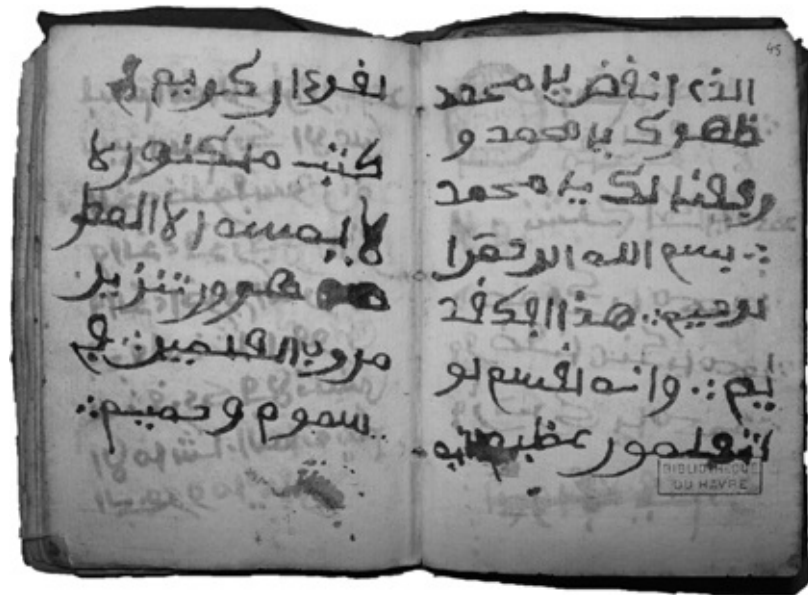 45
الذي انفض يا محمد
ظهوك يا محمد و
لك يا محمد
∴ بسم الله
لرحيم ∴ هذا
ليم ∴ وانه لقسم لو
تعلمون عظيم انه
BIBLIOTHEQUE
DU HAVRE
لقرءان كريم في
كتب مكنون لا
لا يمسه الا المطو
هرون تنزيل
من رب العلمين ∴ في
سموم وحميم ∴